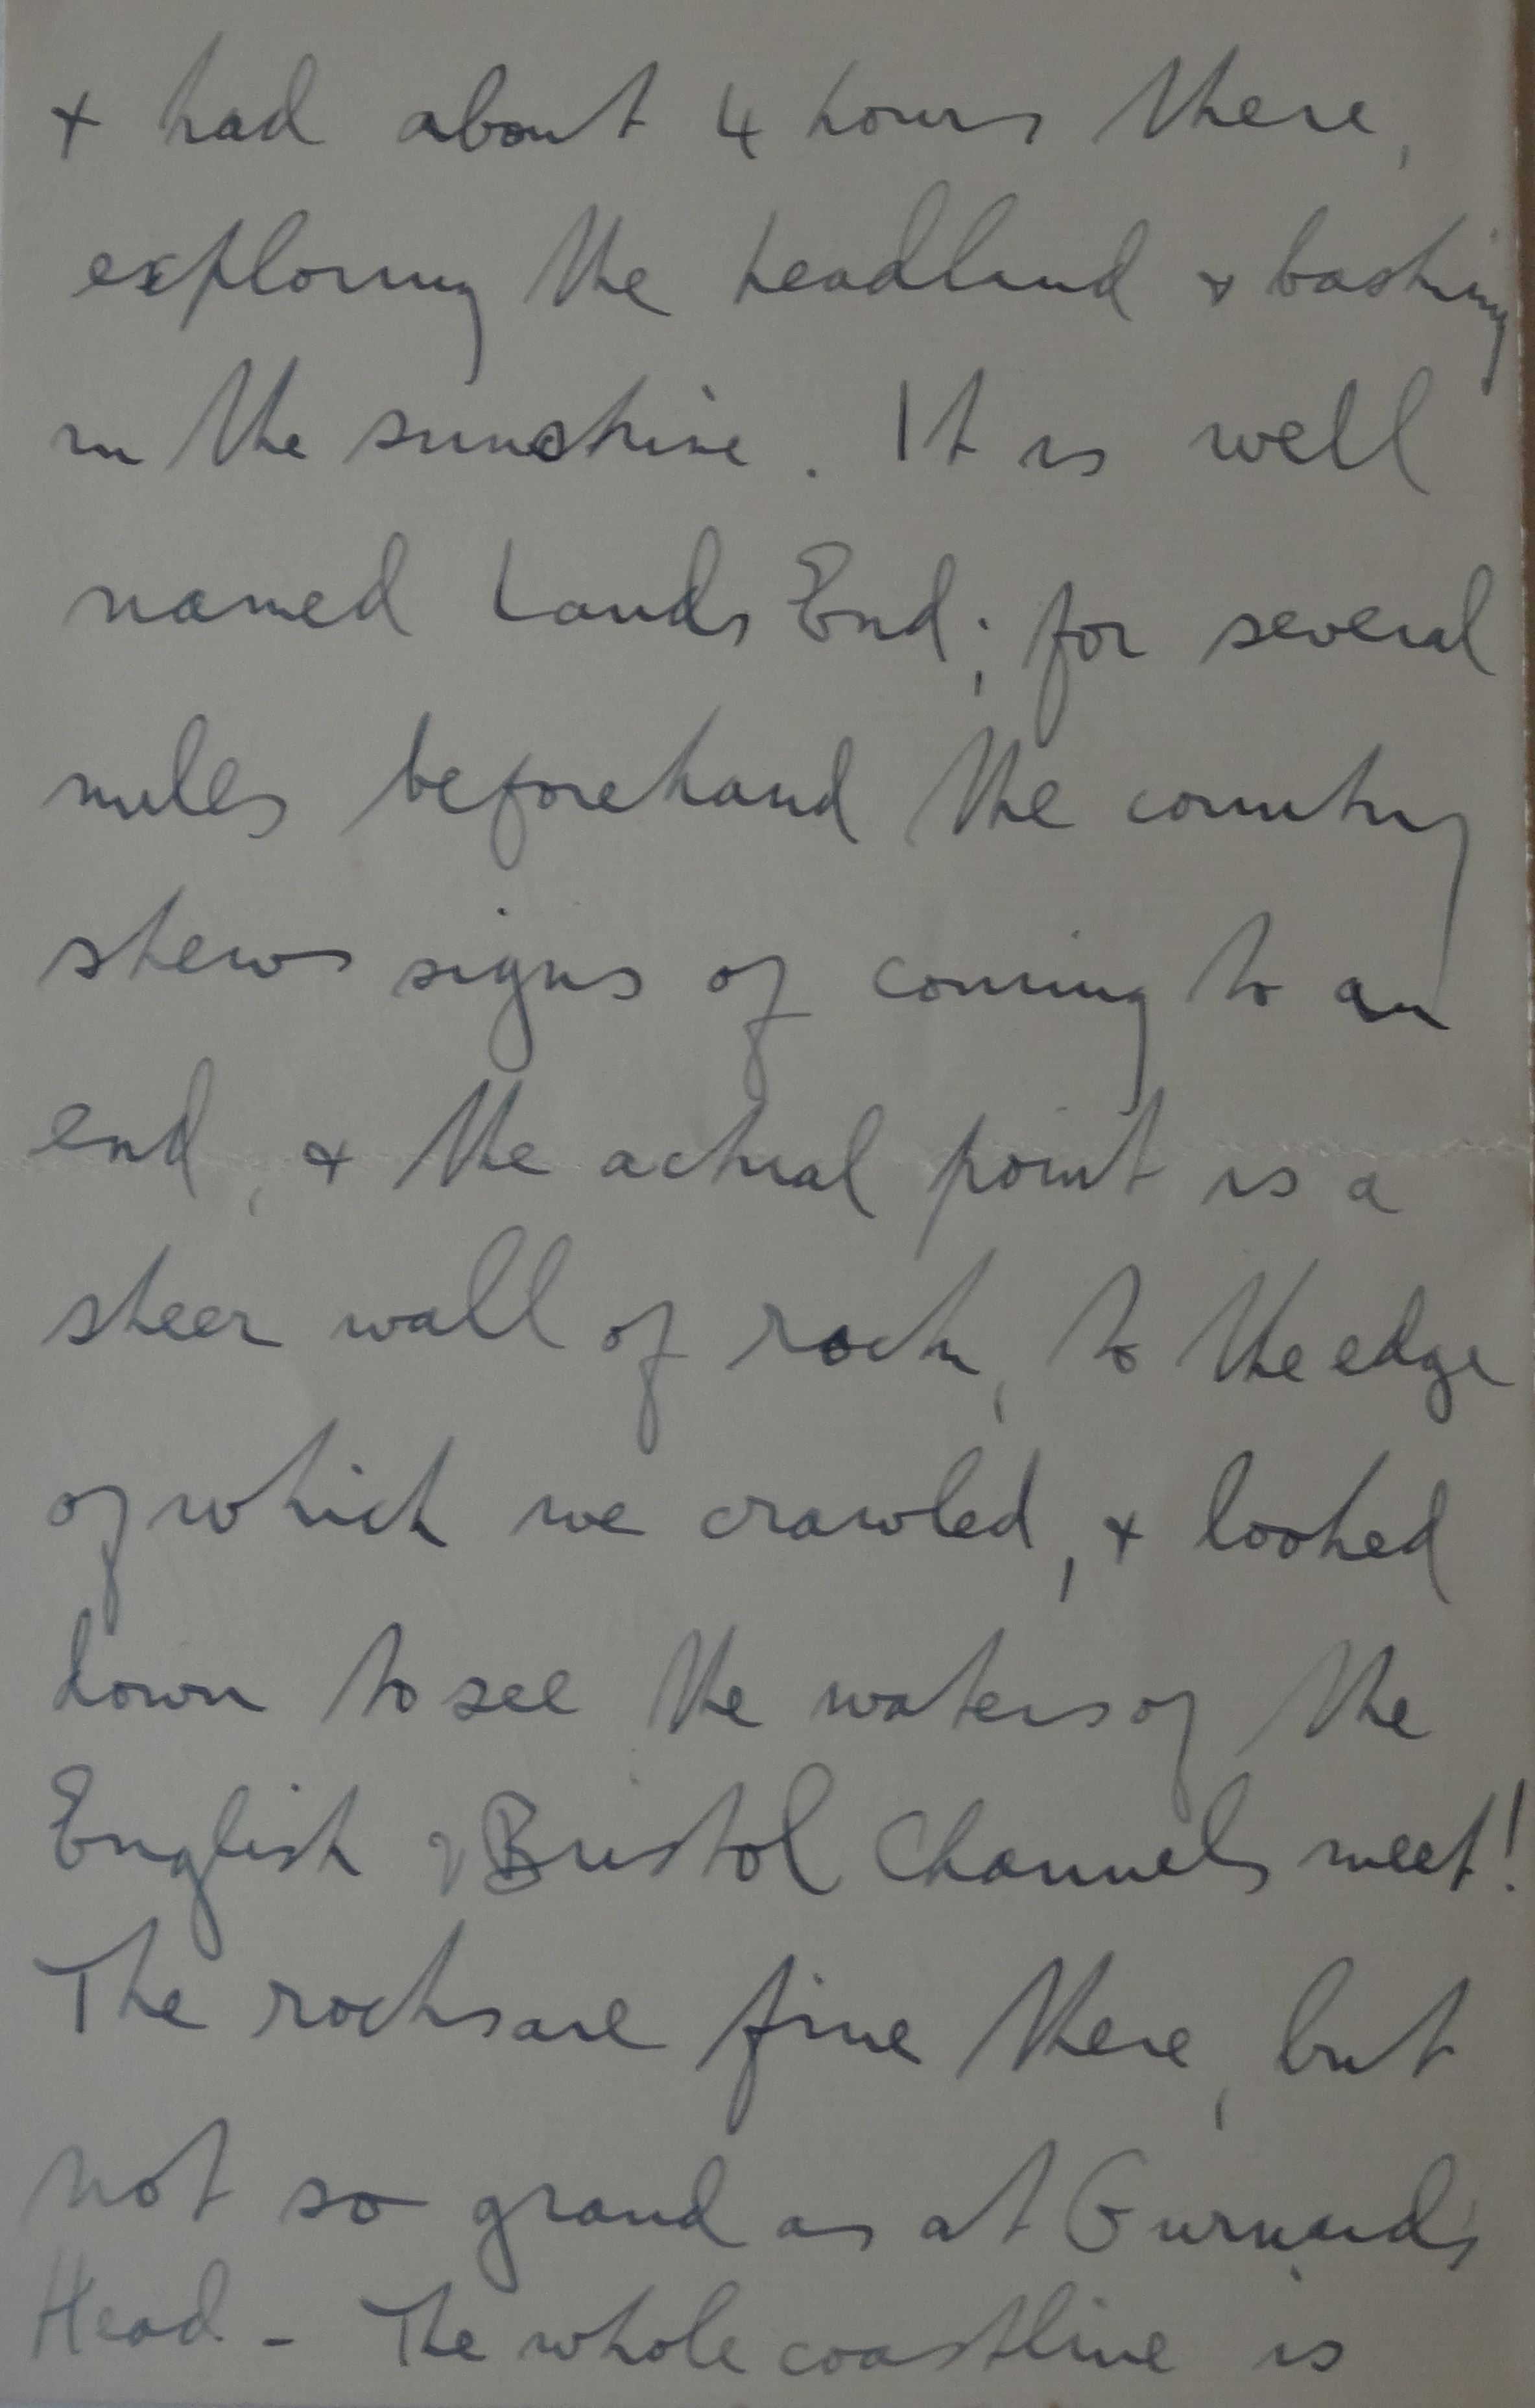 + had about 4 hours there,
exploring the headland + basking
in the sunshine. It is well
named Lands End; for several
miles beforehand the country
shews signs of coming to an
end, + the actual point is a
sheer wall of rock, to the edge
of which we crawled, + looked
down to see the waters of the
English & Bristol Channels meet!
The rocks are fine there, but
not so grand as at Gurnard's
Head - The whole coastline is